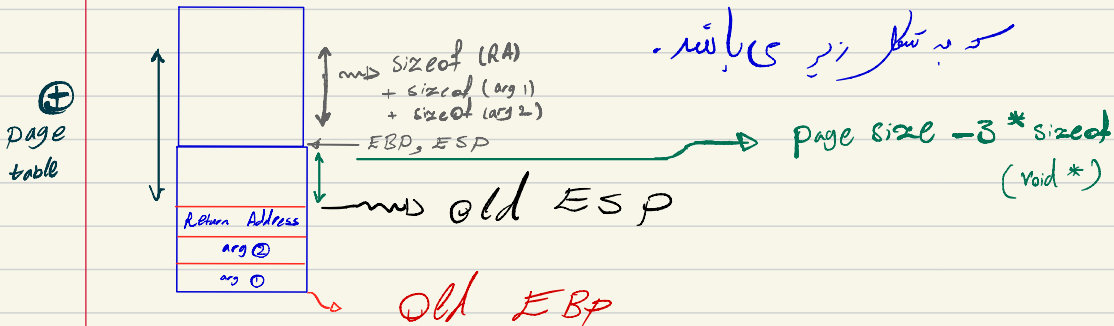 که به شکل زیر می باشد.
sizeof (RA)
+ sizeof (arg 1)
+ sizeof (arg 2)
EBP, ESP
page size - 3 * sizeof
(void *)
+
page
table
old ESP
Return Address
arg ②
arg ①
old EBP